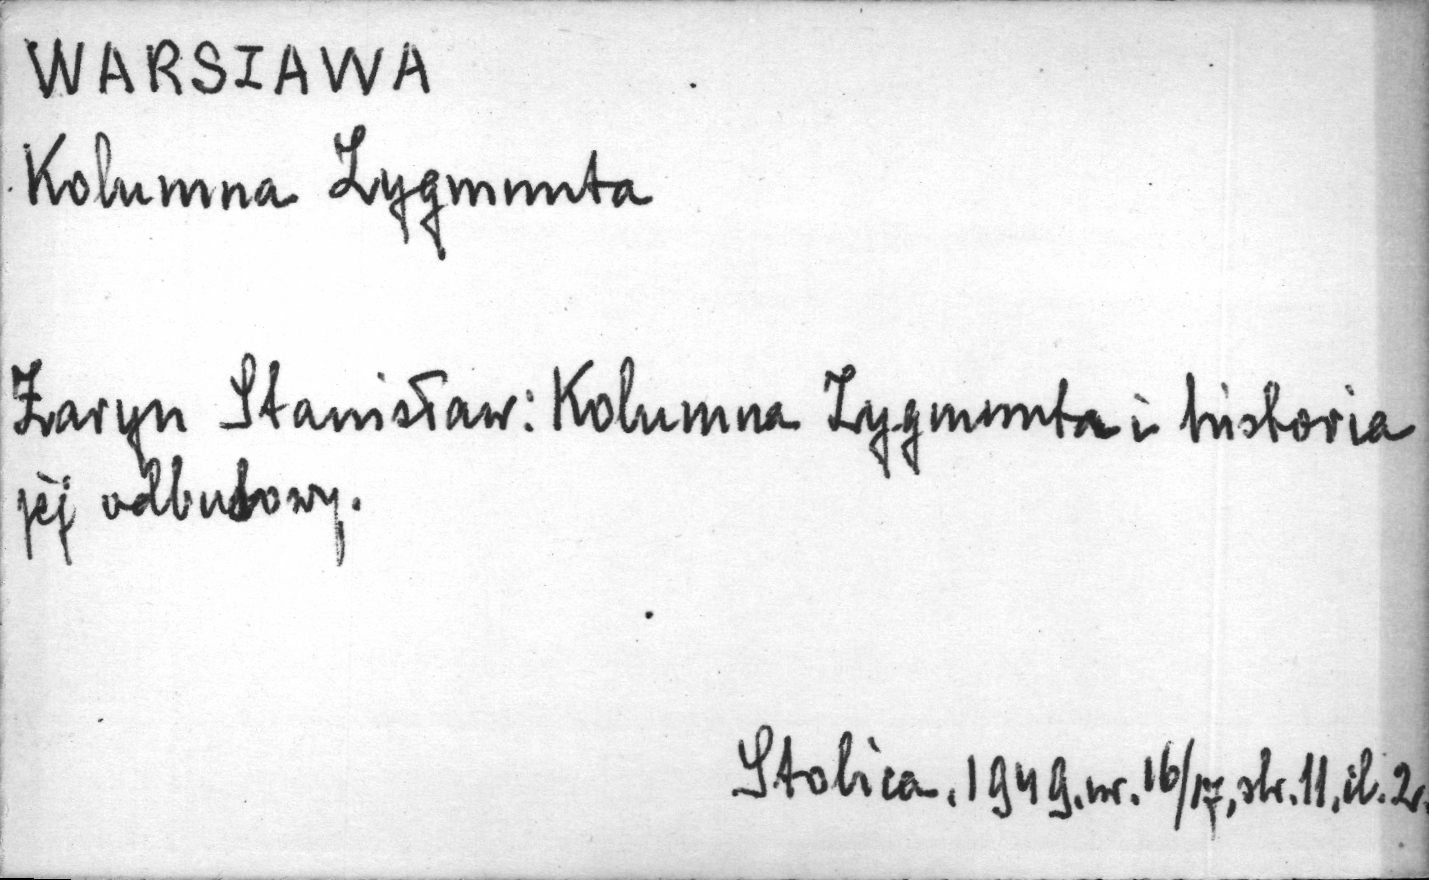 WARSZAWA
Kolumna Zygmunta
Żaryn Stanisław: Kolumna Zygmunta i historia
jej odbudowy.
Stolica. 1949. nr. 16/17, str. 11, il. 2.